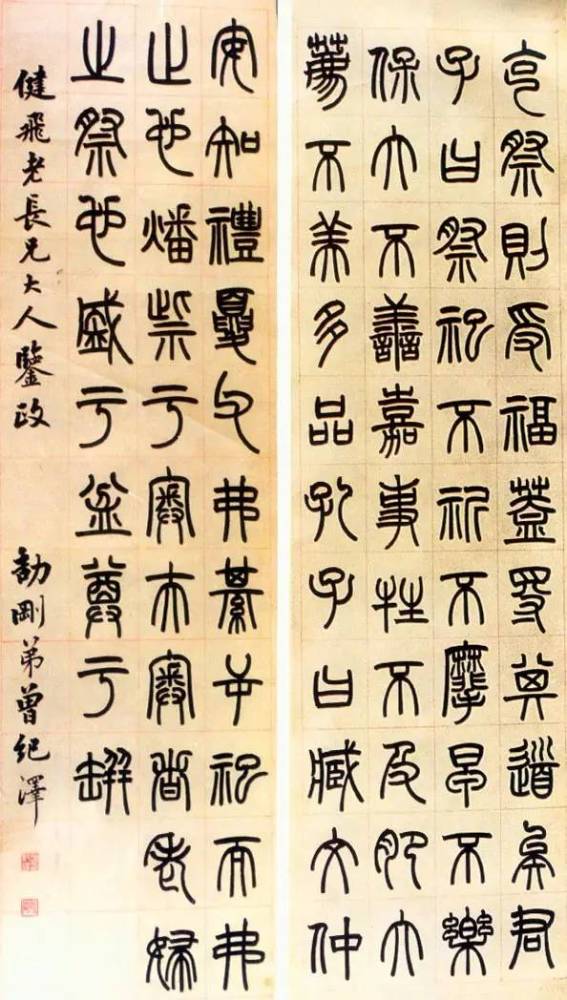 克祭則受福蓋㝵其道矣君
子曰祭祀不祈不麾早不樂
保大不善嘉事牲不及肥大
薦不美多品孔子曰臧文仲
安知禮夏父弗綦屰祀而弗
止也燔祡于奧夫奧者老婦
之祭也盛于盆尊于缾
健飛老長兄大人鑒政
劼剛弟曾紀澤